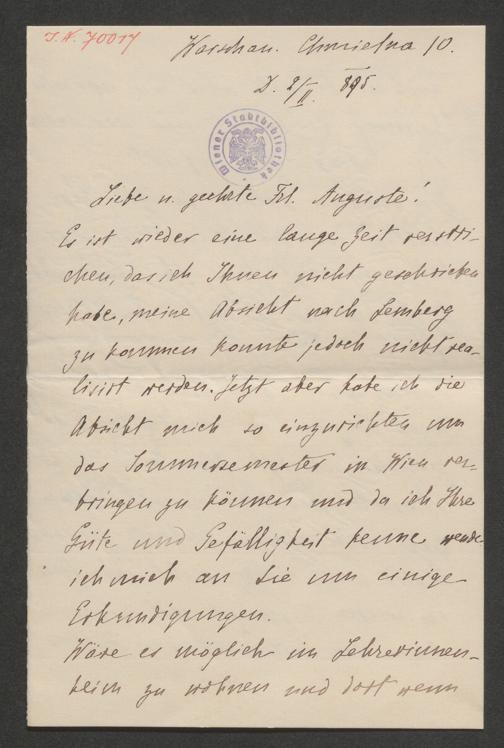 J.N. 70017
Warschau. Chmielna 10.
D. 2/II. 895.
Wiener Stadtbibliothek
Liebe u. geehrte Frl. Auguste!
Es ist wieder eine lange Zeit verstri-
chen, das ich Ihnen nicht geschrieben
habe, meine Absicht nach Lemberg
zu kommen konnte jedoch nicht rea-
lisirt werden. Jetzt aber habe ich die
Absicht mich so einzurichten um
das Sommersemester in Wien ver-
bringen zu können und da ich Ihre
Güte und Gefälligkeit kenne wende
ich mich an Sie um einige
Erkundigungen.
Wäre es möglich im Lehrerinnen-
heim zu wohnen und dort wenn